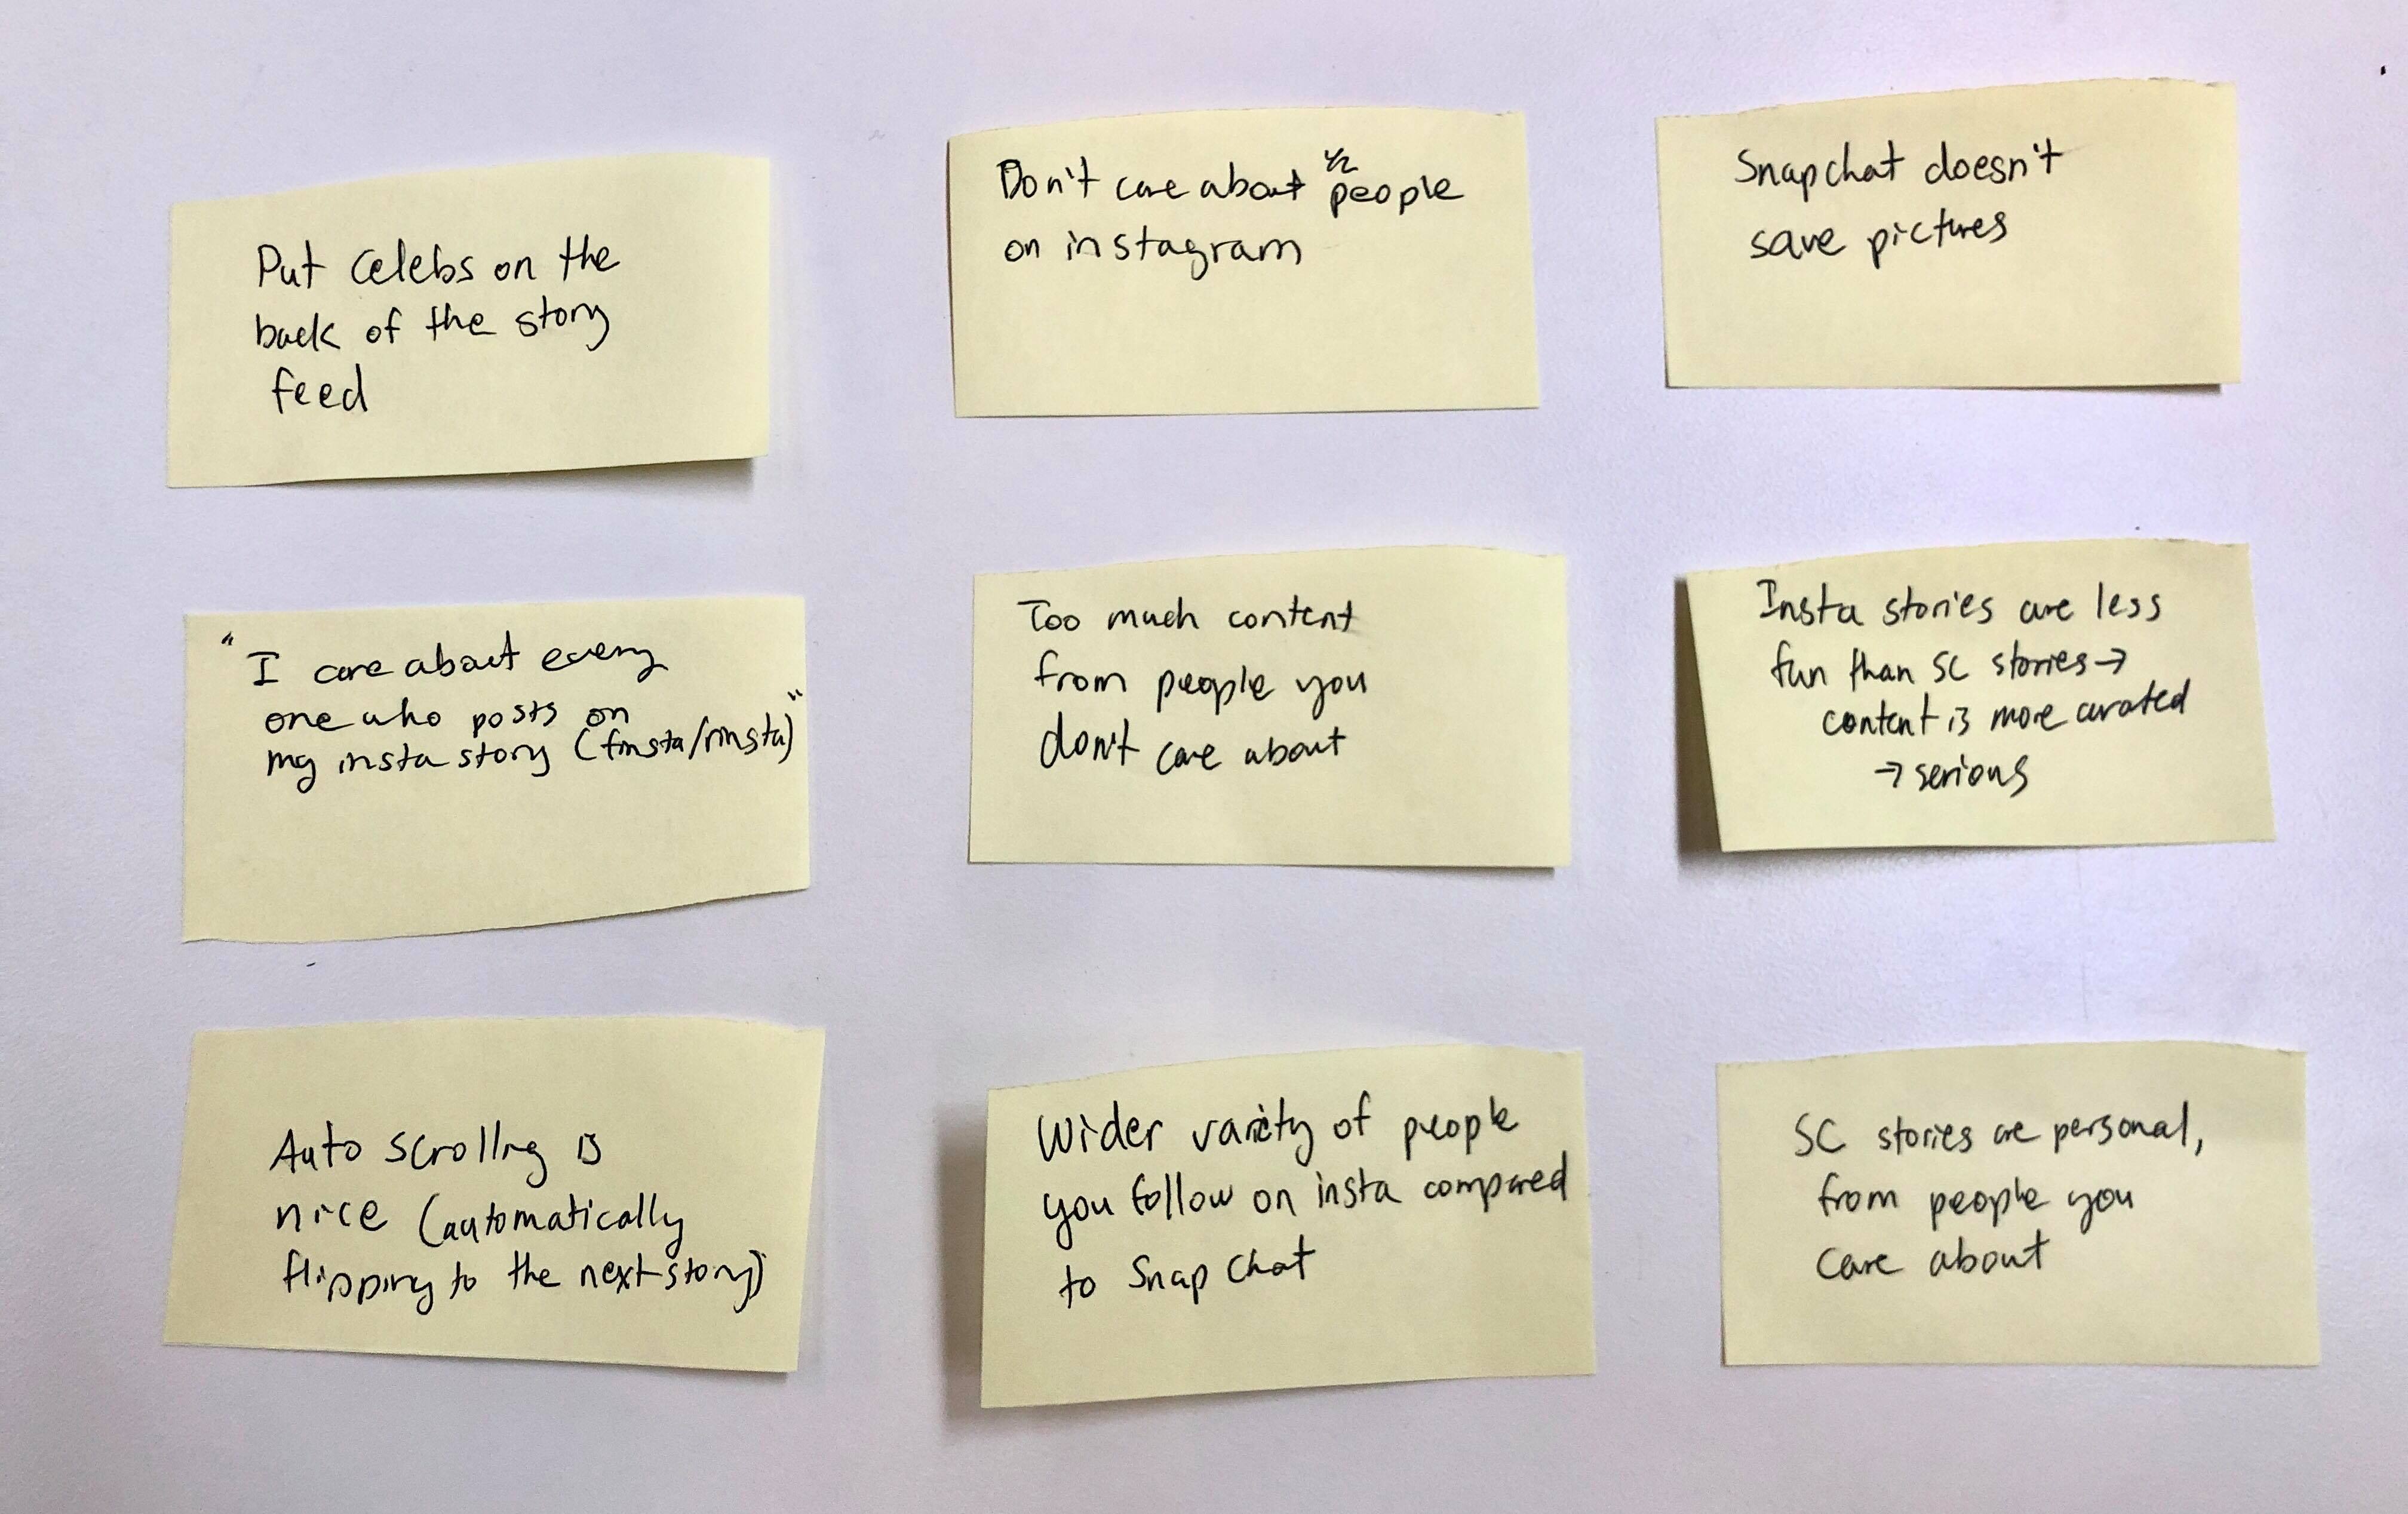 Put celebs on the
back of the story
feed
Don't care about 1/2 people
on instagram
Snapchat doesn't
save pictures
"I care about every
one who posts on
my insta story (finsta/rinsta)"
Too much content
from people you
don't care about
Insta stories are less
fun than SC stories →
content is more curated
→ serious
Auto scrolling is
nice (automatically
flipping to the next story)
Wider variety of people
you follow on insta compared
to Snap Chat
SC stories are personal,
from people you
care about